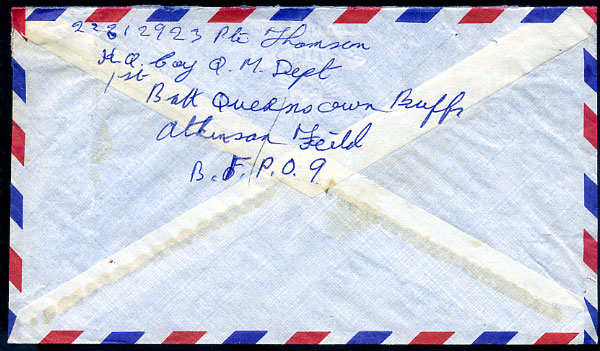 22812923 Pte Thomson
H.Q. Coy Q.M. Dept
1st
Batt Queens own Buffs
Atkinson Feild
B.F.P.O. 9